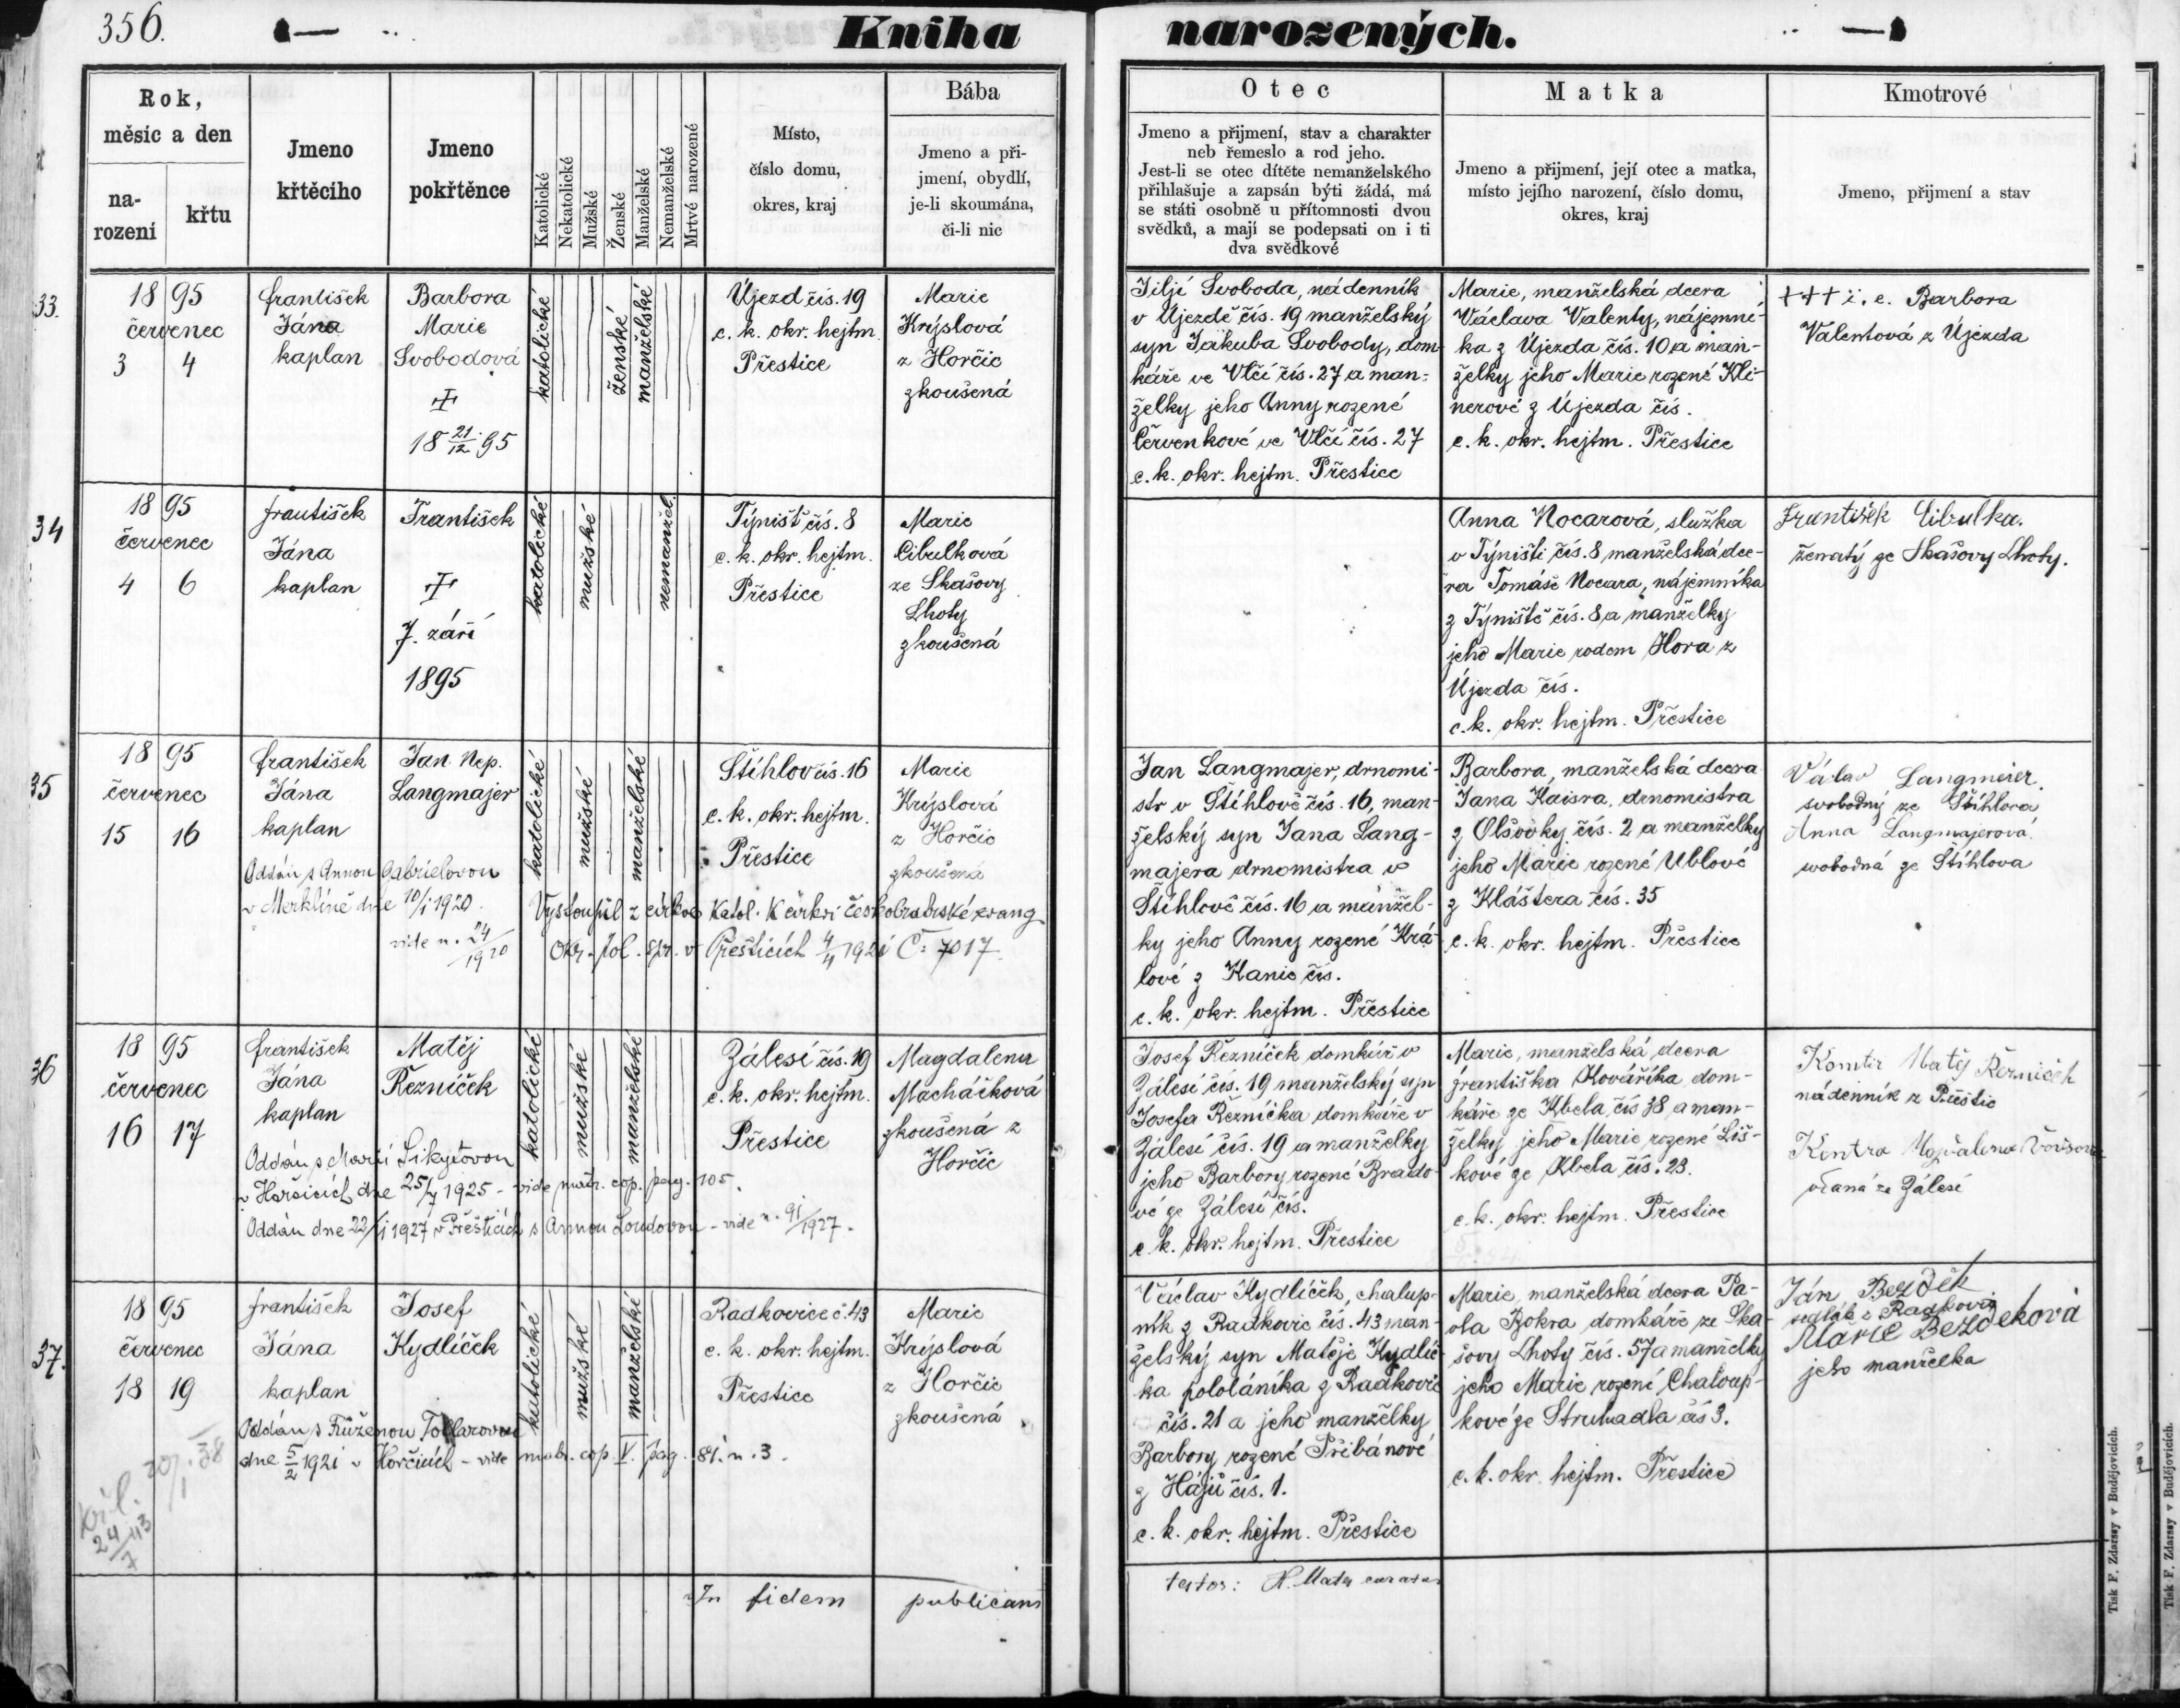 356.
Kniha narozených.
Rok,
měsíc a den
na-
rozeni
křtu
Jmeno
křtěcího
Jmeno
pokřtěnce
Katolické
Nekatolické
Mužské
Ženské
Manželské
Nemanželské
Mrtvé narozené
Místo,
číslo domu,
okres, kraj
Bába
Jmeno a při-
jmení, obydlí,
je-li skoumána,
či-li nic
Otec
Jmeno a přijmení, stav a charakter
neb řemeslo a rod jeho.
Jest-li se otec dítěte nemanželského
přihlašuje a zapsán býti žádá, má
se státi osobně u přítomnosti dvou
svědků, a mají se podepsati on i ti
dva svědkové
Matka
Jmeno a přijmení, její otec a matka,
místo jejího narození, číslo domu,
okres, kraj
Kmotrové
Jmeno, přijmení a stav
33.
1895
červenec
3 4
František
Jána
kaplan
Barbora
Marie
Svobodová
18 21/12 95
katolické
ženské
manželské
Újezd čís. 19
c. k. okr. hejtm.
Přestice
Marie
Krýslová
z Horčic
zkoušená
Jiljí Svoboda, nádenník
v Újezdě čís. 19 manželský
syn Jakuba Svobody, dom-
káře ve Vlčí čís. 27 a man-
želky jeho Anny rozené
Červenkové ve Vlčí čís. 27
c. k. okr. hejtm. Přestice
Marie, manželská dcera
Václava Valenty, nájemní-
ka z Újezda čís. 10 a man-
želky jeho Marie rozené Kli-
nerové z Újezda čís.
c. k. okr. hejtm. Přestice
††† i. e. Barbora
Valentová z Újezda
34
1895
červenec
4 6
František
Jána
kaplan
František
7. září
1895
katolické
mužské
nemanžel.
Týništ čís. 8
c. k. okr. hejtm.
Přestice
Marie
Cibulková
ze Skašovy
Lhoty
zkoušená
Anna Nocarová, služka
v Týništi čís. 8 manželská dce-
ra Tomáše Nocara, nájemníka
z Týniště čís. 8 a manželky
jeho Marie rodem Hora z
Újezda čís.
c. k. okr. hejtm. Přestice
František Cibulka.
ženatý ze Skašovy Lhoty.
35
1895
červenec
15 16
František
Jána
kaplan
Jan Nep.
Langmajer
katolické
mužské
manželské
Štíhlov čís. 16
c. k. okr. hejtm.
Přestice
Marie
Krýslová
z Horčic
zkoušená
Oddán s Annou Gabrielovou
v Merklíně dne 10/1 1920.
vide n. 24/1920
Vystoupil z církve katol. k církvi českobratrské evang
Okr. pol. spr. v Přešticích 4/4 1921 Č: 7017.
Jan Langmajer, drnomi-
str v Štíhlově čís. 16, man-
želský syn Jana Lang-
majera drnomistra v
Štíhlově čís. 16 a manžel-
ky jeho Anny rozené Krá-
lové z Kanic čís.
c. k. okr. hejtm. Přestice
Barbora, manželská dcera
Jana Kaisra, drnomistra
z Olšovky čís. 2 a manželky
jeho Marie rozené Üblové
z Kláštera čís. 35
c. k. okr. hejtm. Přestice
Václav Langmeier.
svobodný ze Štíhlova
Anna Langmajerová
svobodná ze Štíhlova
36
1895
červenec
16 17
František
Jána
kaplan
Matěj
Řezníček
katolické
mužské
manželské
Zálesí čís. 19
c. k. okr. hejtm.
Přestice
Magdalena
Macháčková
zkoušená z
Horčic
Oddán s Marií
v Horšicích dne 25/7 1925 - vide matr. cop. pag. 105.
Oddán dne 22/1 1927 v Přešticích s Annou Loudovou - vide n. 91/1927.
Josef Řezníček domkář v
Zálesí čís. 19 manželský syn
Josefa Řezníčka domkáře v
Zálesí čís. 19 a manželky
jeho Barbory rozené Brado-
vé ze Zálesí čís.
c. k. okr. hejtm. Přestice
Marie, manželská dcera
Františka Kováříka, dom-
káře ze Kbela, čís 38 a man-
želky jeho Marie rozené Liš-
kové ze Kbela čís. 23.
c. k. okr. hejtm. Přestice
Matěj Řezníček
nádenník z Přeštic
Magdalena
vdaná ze Zálesí
37.
1895
červenec
18 19
František
Jána
kaplan
Josef
Kydlíček
katolické
mužské
manželské
Radkovice č. 43
c. k. okr. hejtm.
Přestice
Marie
Krýslová
z Horčic
zkoušená
Oddán s Růženou Tollarovou
dne 5/2 1921 v Horčicích - vide matr. cop. V. pag. 81. n. 3.
24/7 43
Václav Kydlíček, chalup-
ník z Radkovic čís. 43 man-
želský syn Matěje Kydlíč-
ka pololáníka z Radkovic
čís. 21 a jeho manželky
Barbory rozené Přibánové
z Hájů čís. 1.
c. k. okr. hejtm. Přestice
Marie, manželská dcera Pa-
vla Bokra domkáře ze Ska-
šovy Lhoty čís. 57 a manželky
jeho Marie rozené Chaloup-
kové ze Struhadla čís 3.
c. k. okr. hejtm. Přestice
Ján Bezděk
sedlák z Radkovic
Marie Bezdeková
jeho manželka
In fidem publicam
testor:
Tisk F. Zdarssy v Budějovicích.
Tisk F. Zdarssy v Budějovicích.